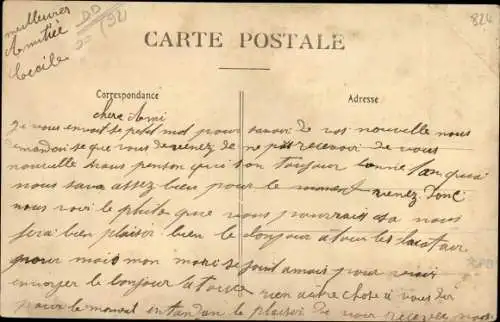 meilleures
Amitiée
Cecile
CARTE POSTALE
Correspondance
Adresse
chere Ami
Je vous envoit se petit mot pour savoir de vos nouvelle nous
demandon se que vous devenez de ne pas recevoir de vous
nouvelle nous penson qui son toujour bonne
nous sava assez bien pour le moment venez donc
nous voir le pluto que vous pourrais sa nous
fera bien plaisir bien le bonjour a tour
pour moi mon mari se joint amoi pour vous
envoyer le bonjour a tous rien autre chose a vous dir
pour le moment en tandan le plaisir de vous recevoir nous